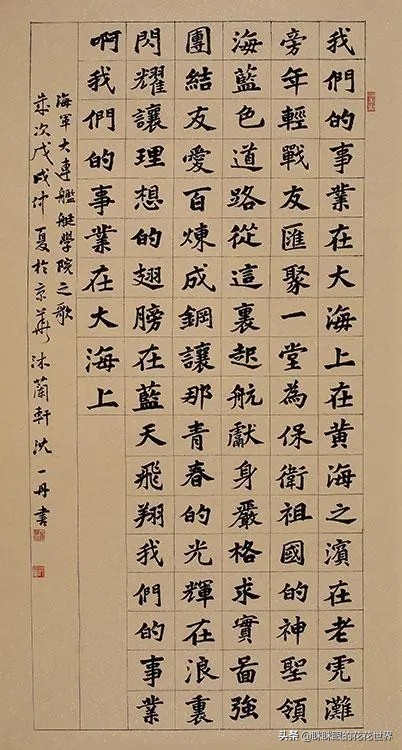 我們的事業在大海上在黃海之濱在老虎灘
旁年輕戰友匯聚一堂為保衛祖國的神聖領
海藍色道路從這裏起航獻身嚴格求實啚強
團結友愛百煉成鋼讓那青春的光輝在浪裏
閃耀讓理想的翅膀在藍天飛翔我們的事業
啊我們的事業在大海上
海軍大連艦艇學院之歌
歲次戊戌仲夏於京華沐蘭軒沈一丹書
头条 @眯眯眼的花花世界